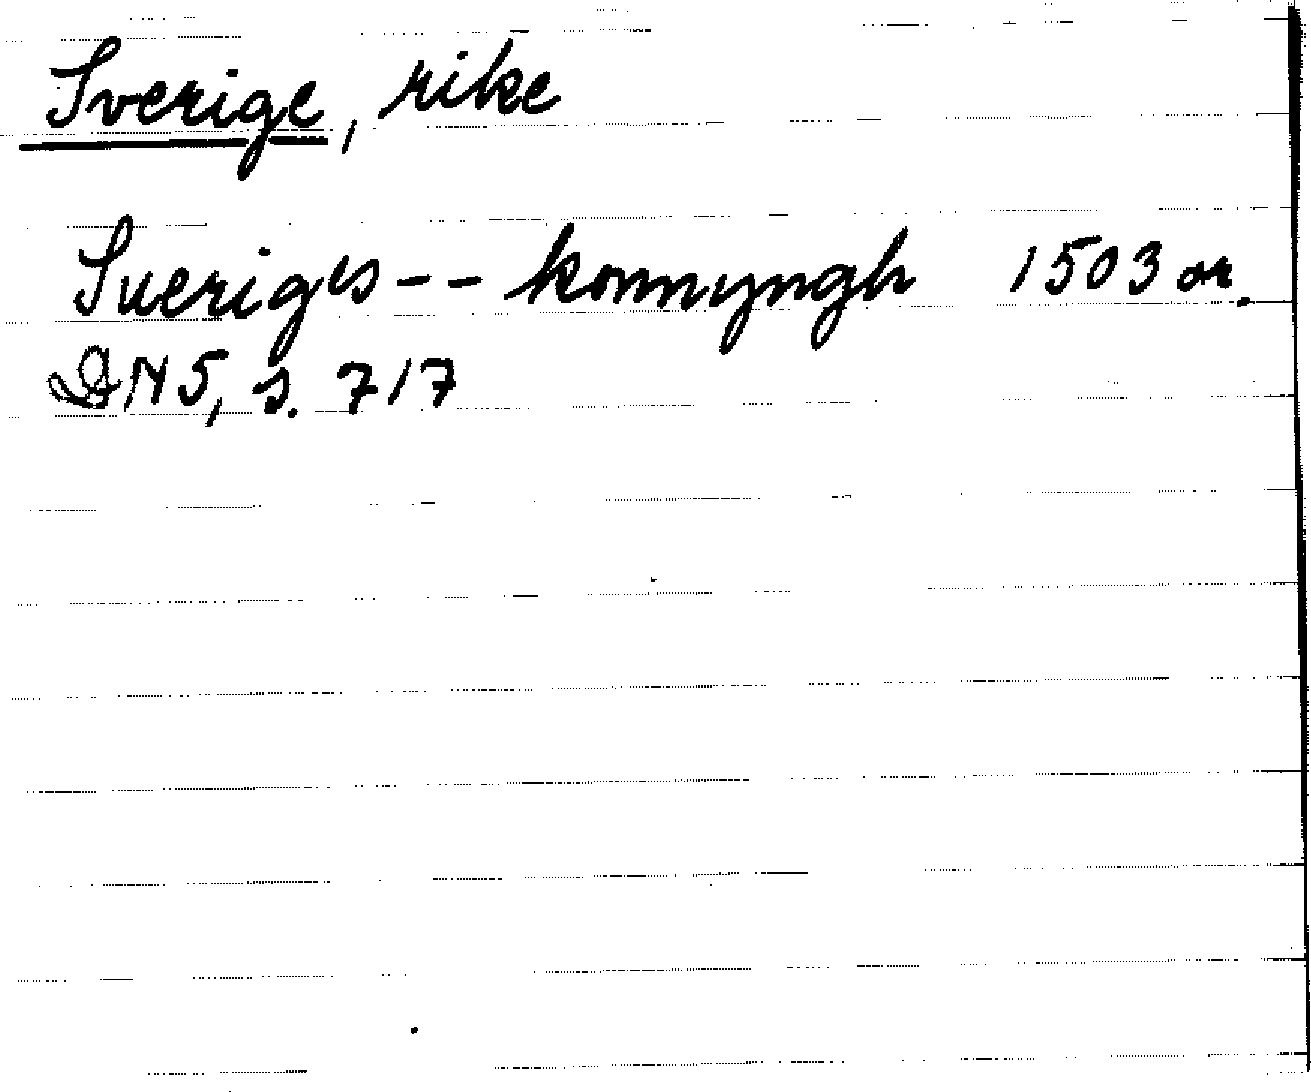 Sverige, rike
Sveriges -- konnyngh 1503 or.
DN 5, s. 717